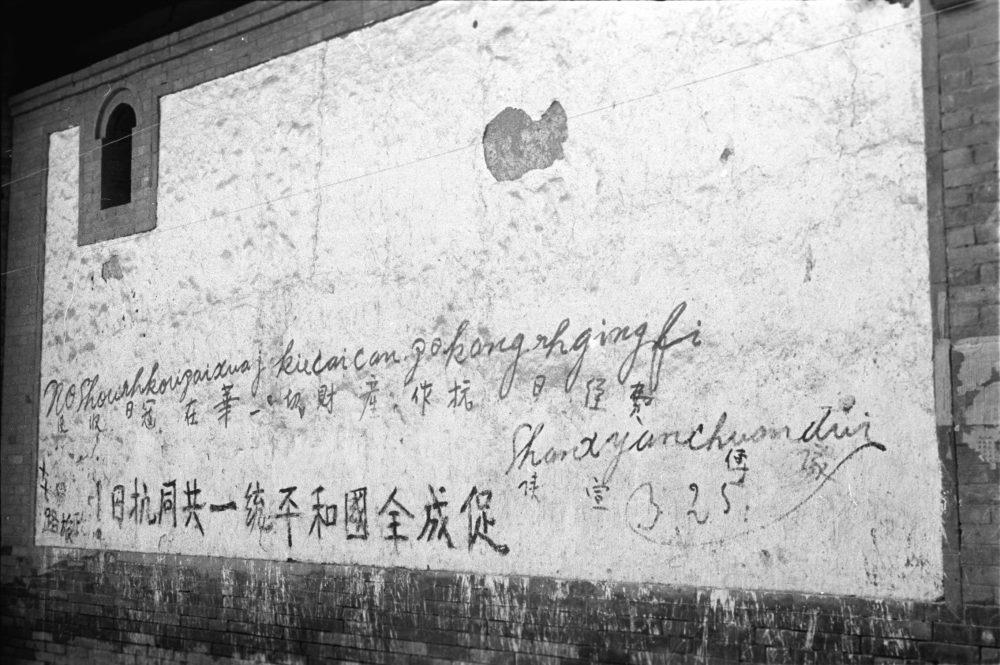 NOShourhkouzaixuaj kiecaican zokangrhgingfi
沒收日冠在華一切財產作抗日經費
Shanxyanchuandui
陕宣傳
3.25.
促成全國和平統一共同抗日!